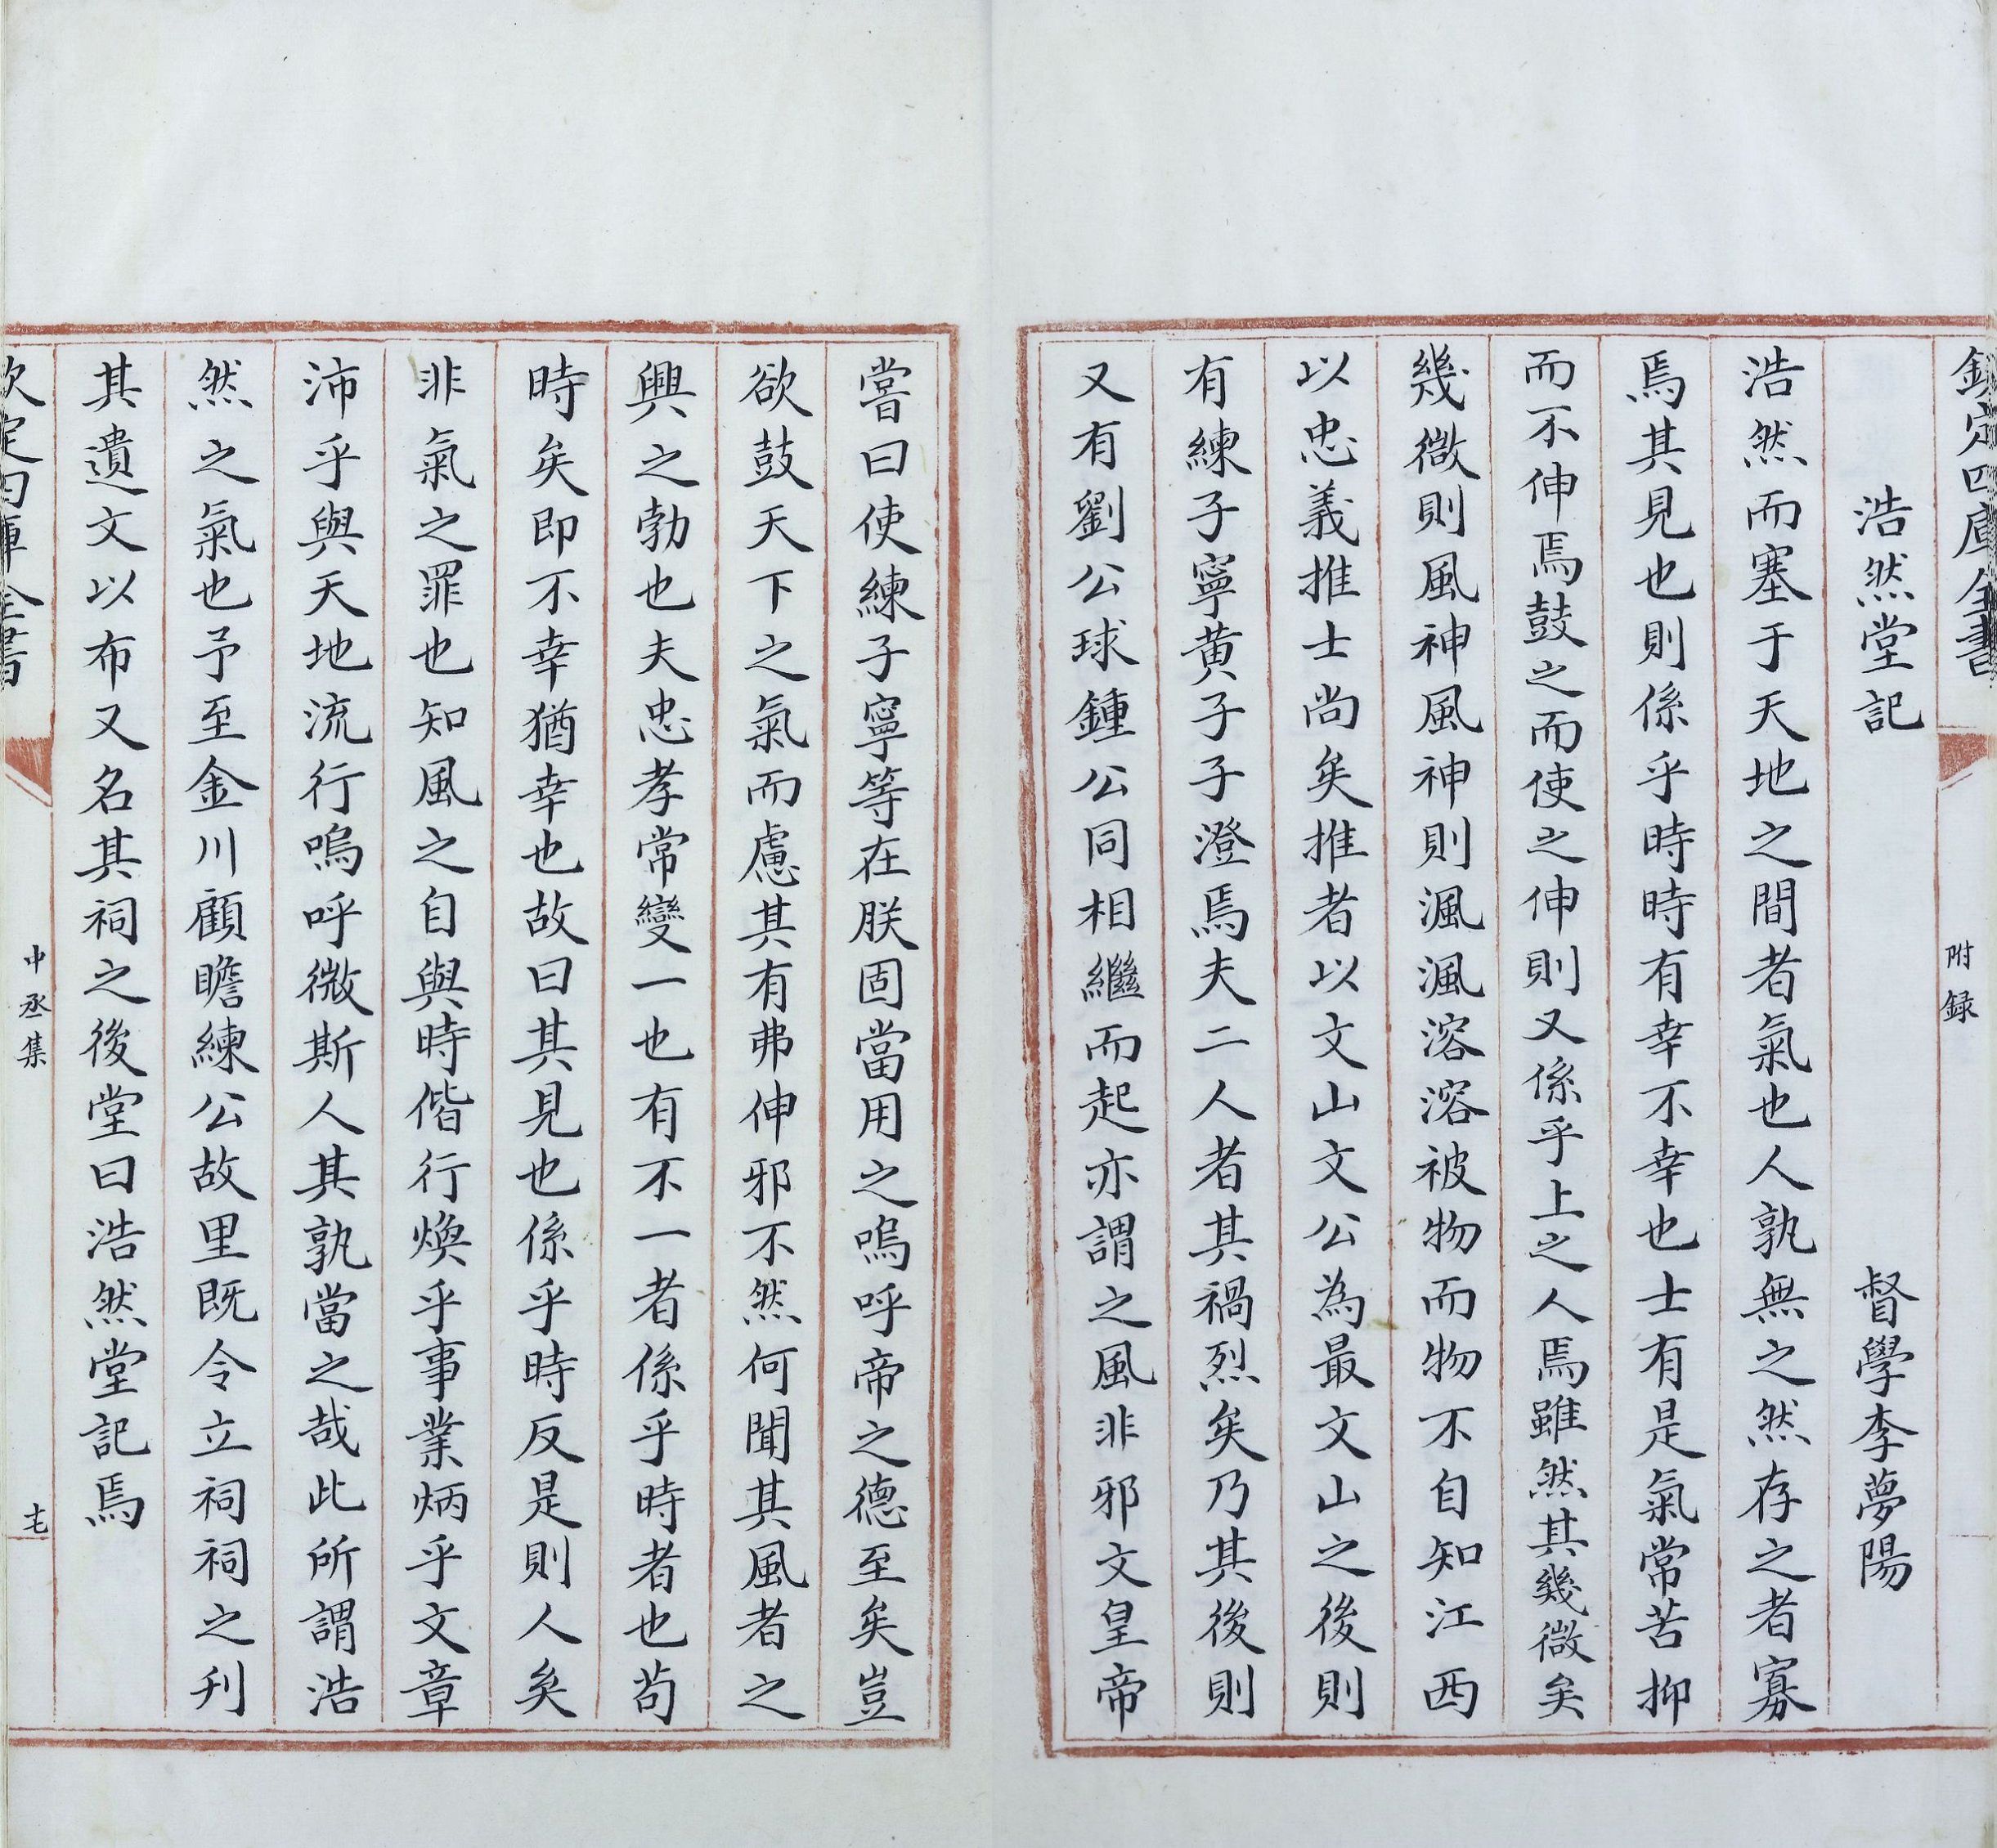 欽定四庫全書
附録
浩然堂記　督學李夢陽
浩然而塞于天地之間者氣也人孰無之然存之者寡
焉其見也則係乎時時有幸不幸也士有是氣常苦抑
而不伸焉鼓之而使之伸則又係乎上之人焉雖然其幾微矣
幾微則風神風神則渢渢溶溶被物而物不自知江西
以忠義推士尚矣推者以文山文公為最文山之後則
有練子寧黄子子澄焉夫二人者其禍烈矣乃其後則
又有劉公球鍾公同相繼而起亦謂之風非邪文皇帝
嘗曰使練子寧等在朕固當用之嗚呼帝之德至矣豈
欲鼓天下之氣而慮其有弗伸邪不然何聞其風者之
興之勃也夫忠孝常變一也有不一者係乎時者也茍
時矣即不幸猶幸也故曰其見也係乎時反是則人矣
非氣之罪也知風之自與時偕行煥乎事業炳乎文章
沛乎與天地流行嗚呼微斯人其孰當之哉此所謂浩
然之氣也予至金川顧瞻練公故里既令立祠祠之刋
其遺文以布又名其祠之後堂曰浩然堂記焉
欽定四庫全書
中丞集
十七